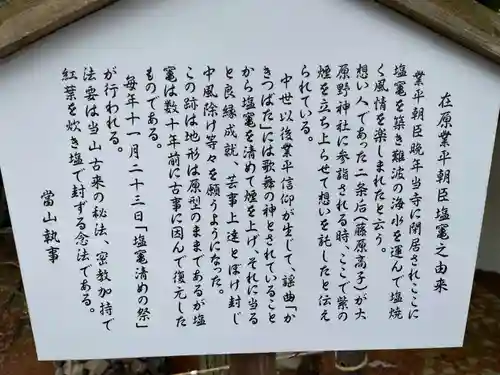 在原業平朝臣塩竈之由来
業平朝臣晩年当寺に閉居されここに
塩竈を築き難波の海水を運んで塩焼
く風情を楽しまれたと云う。
想い人であった二条后(藤原高子)が大
原野神社に参詣される時、ここで紫の
煙を立ち上らせて想いを託したと伝え
られている。
中世以後業平信仰が生じて、謡曲「か
きつばた」には歌舞の神とされていること
から塩竈を清めて煙を上げ、それに当る
と良縁成就、芸事上達とぼけ封じ
中風除け等々を願うようになった。
この跡は地形は原型のままであるが塩
竈は数十年前に古事に因んで復元した
ものである。
毎年十一月二十三日「塩竈清めの祭」
が行われる。
法要は当山古来の秘法、密教加持で
紅葉を炊き塩で封ずる念法である。
當山執事